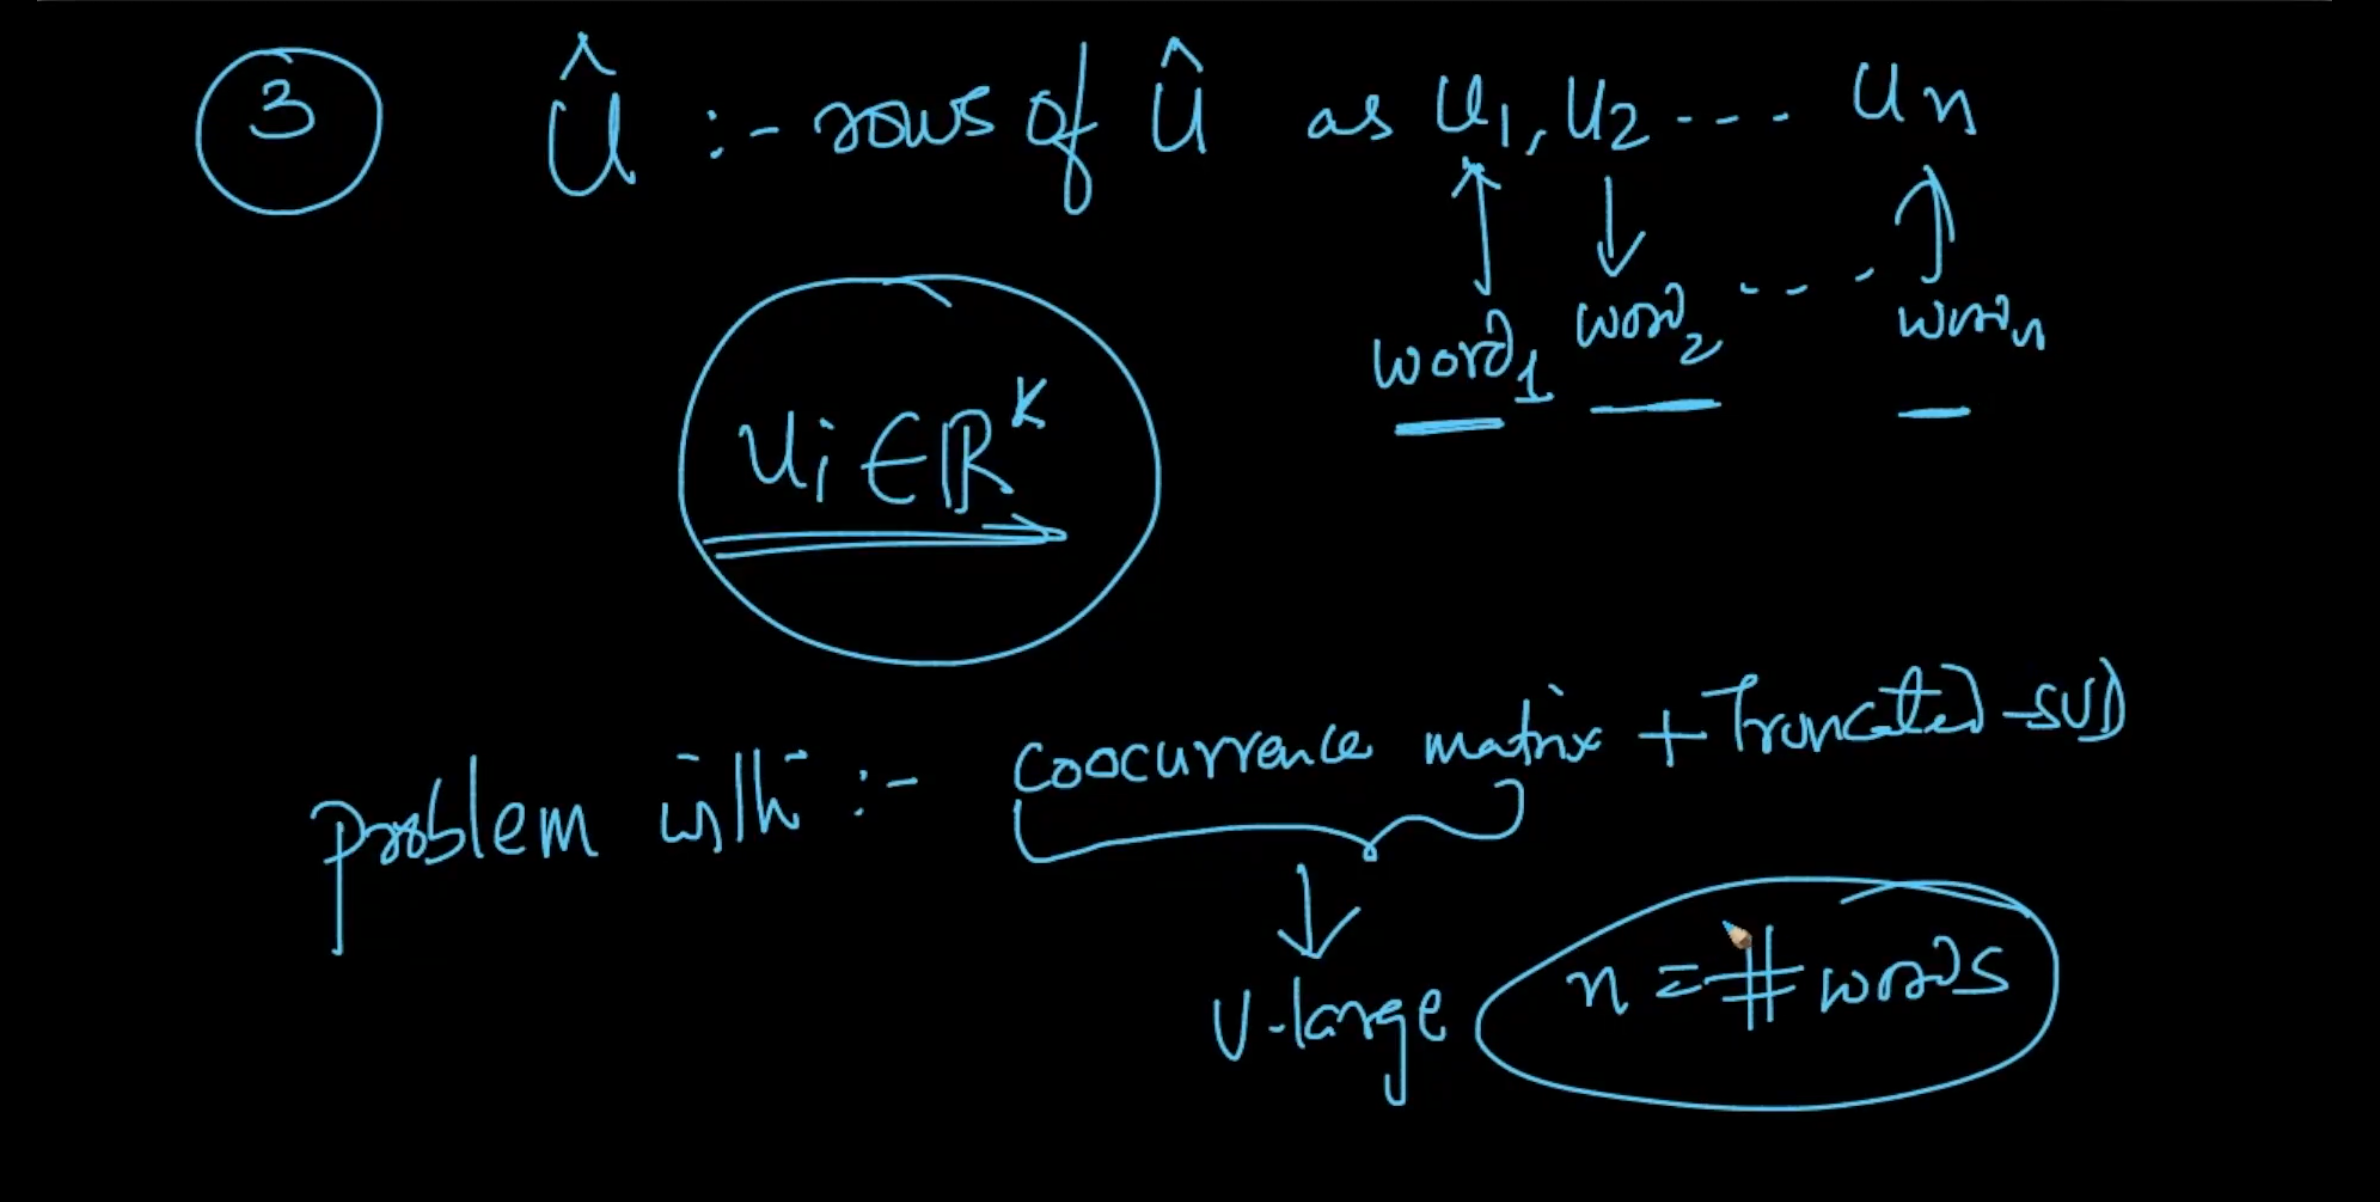 3 Û :- rows of Û as u1, u2 --- un
word1 word2 --- wordn
ui ∈ ℝ^k
problem with :- coocurrence matrix + Truncated-SVD
v-large n = # words